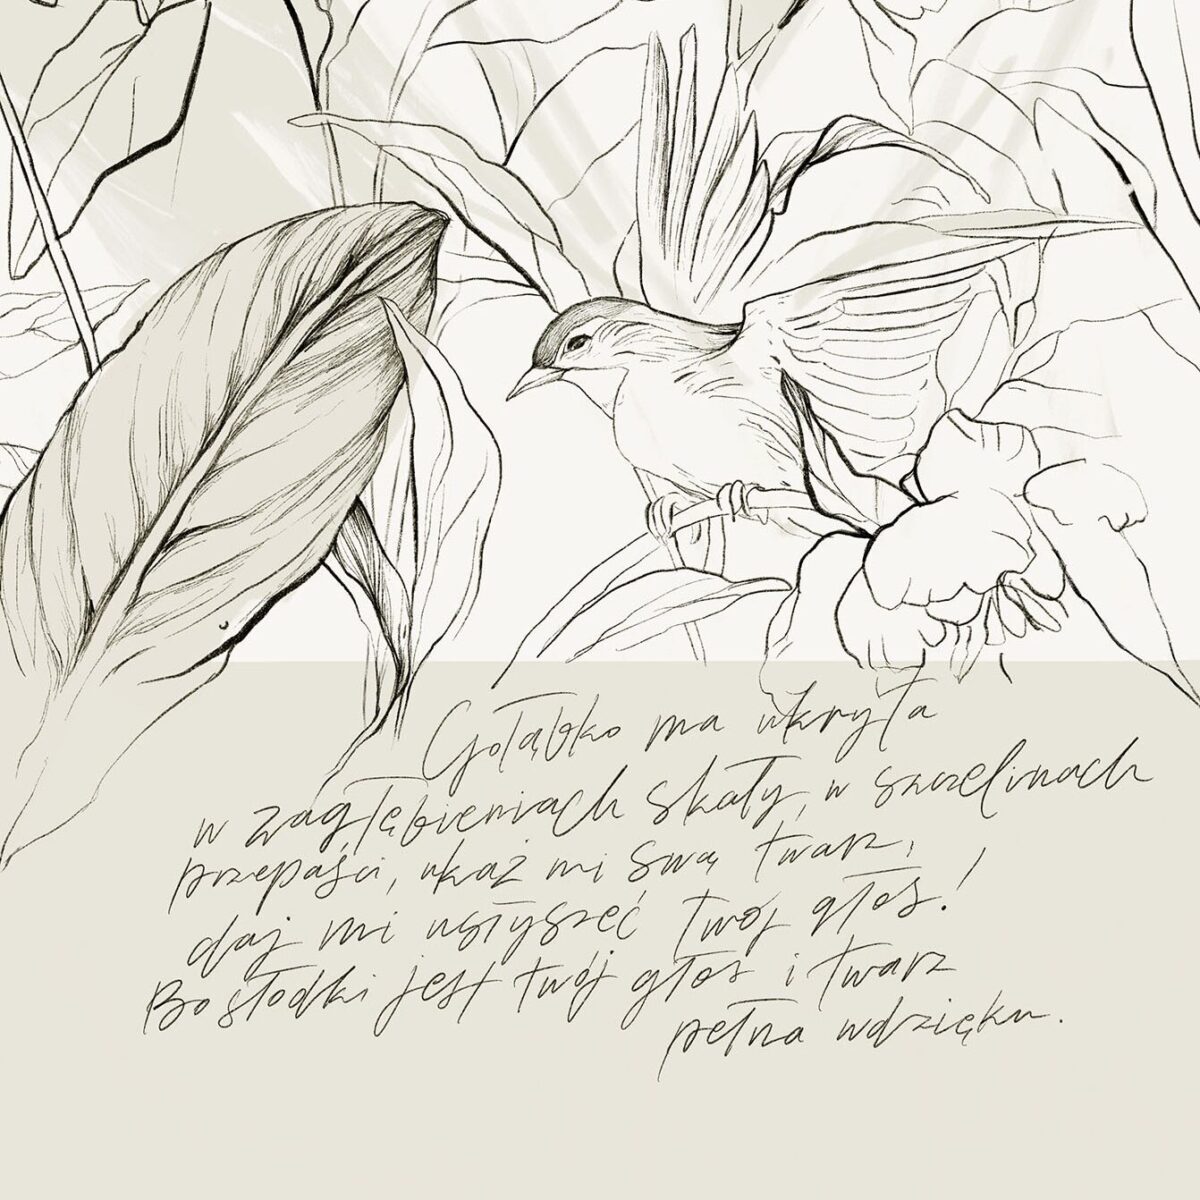 Gołąbko ma ukryta
w zagłębieniach skały, w szczelinach
przepaści, ukaż mi swą twarz,
daj mi usłyszeć twój głos!
Bo słodki jest twój głos i twarz
pełna wdzięku.